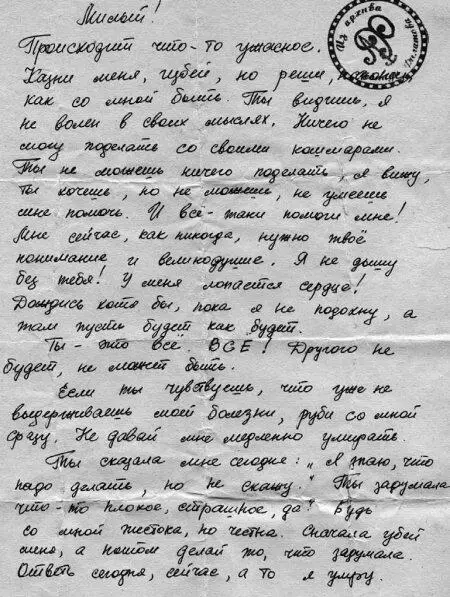 Милый!
Происходит что-то ужасное.
Казни меня, избей, но реши,
как со мной быть. Ты видишь, я
не волен в своих мыслях. Ничего не
могу поделать со своими кошмарами.
Ты не можешь ничего поделать, я вижу,
ты хочешь, но не можешь, не умеешь
мне помочь. И всё-таки помоги мне!
Мне сейчас, как никогда, нужно твоё
понимание и великодушие. Я не дышу
без тебя! У меня лопается сердце!
Дождись хотя бы, пока я не подохну, а
там пусть будет как будет.
Ты - это всё. ВСЁ! Другого не
будет, не может быть.
Если ты чувствуешь, что уже не
выдерживаешь моей болезни, руби со мной
сразу. Не давай мне медленно умирать.
Ты сказала мне сегодня: „Я знаю, что
надо делать, но не скажу." Ты задумала
что-то плохое, страшное, да? Будь
со мной жестока, но честна. Сначала убей
меня, а потом делай то, что задумала.
Ответь сегодня, сейчас, а то я умру.
Из архива